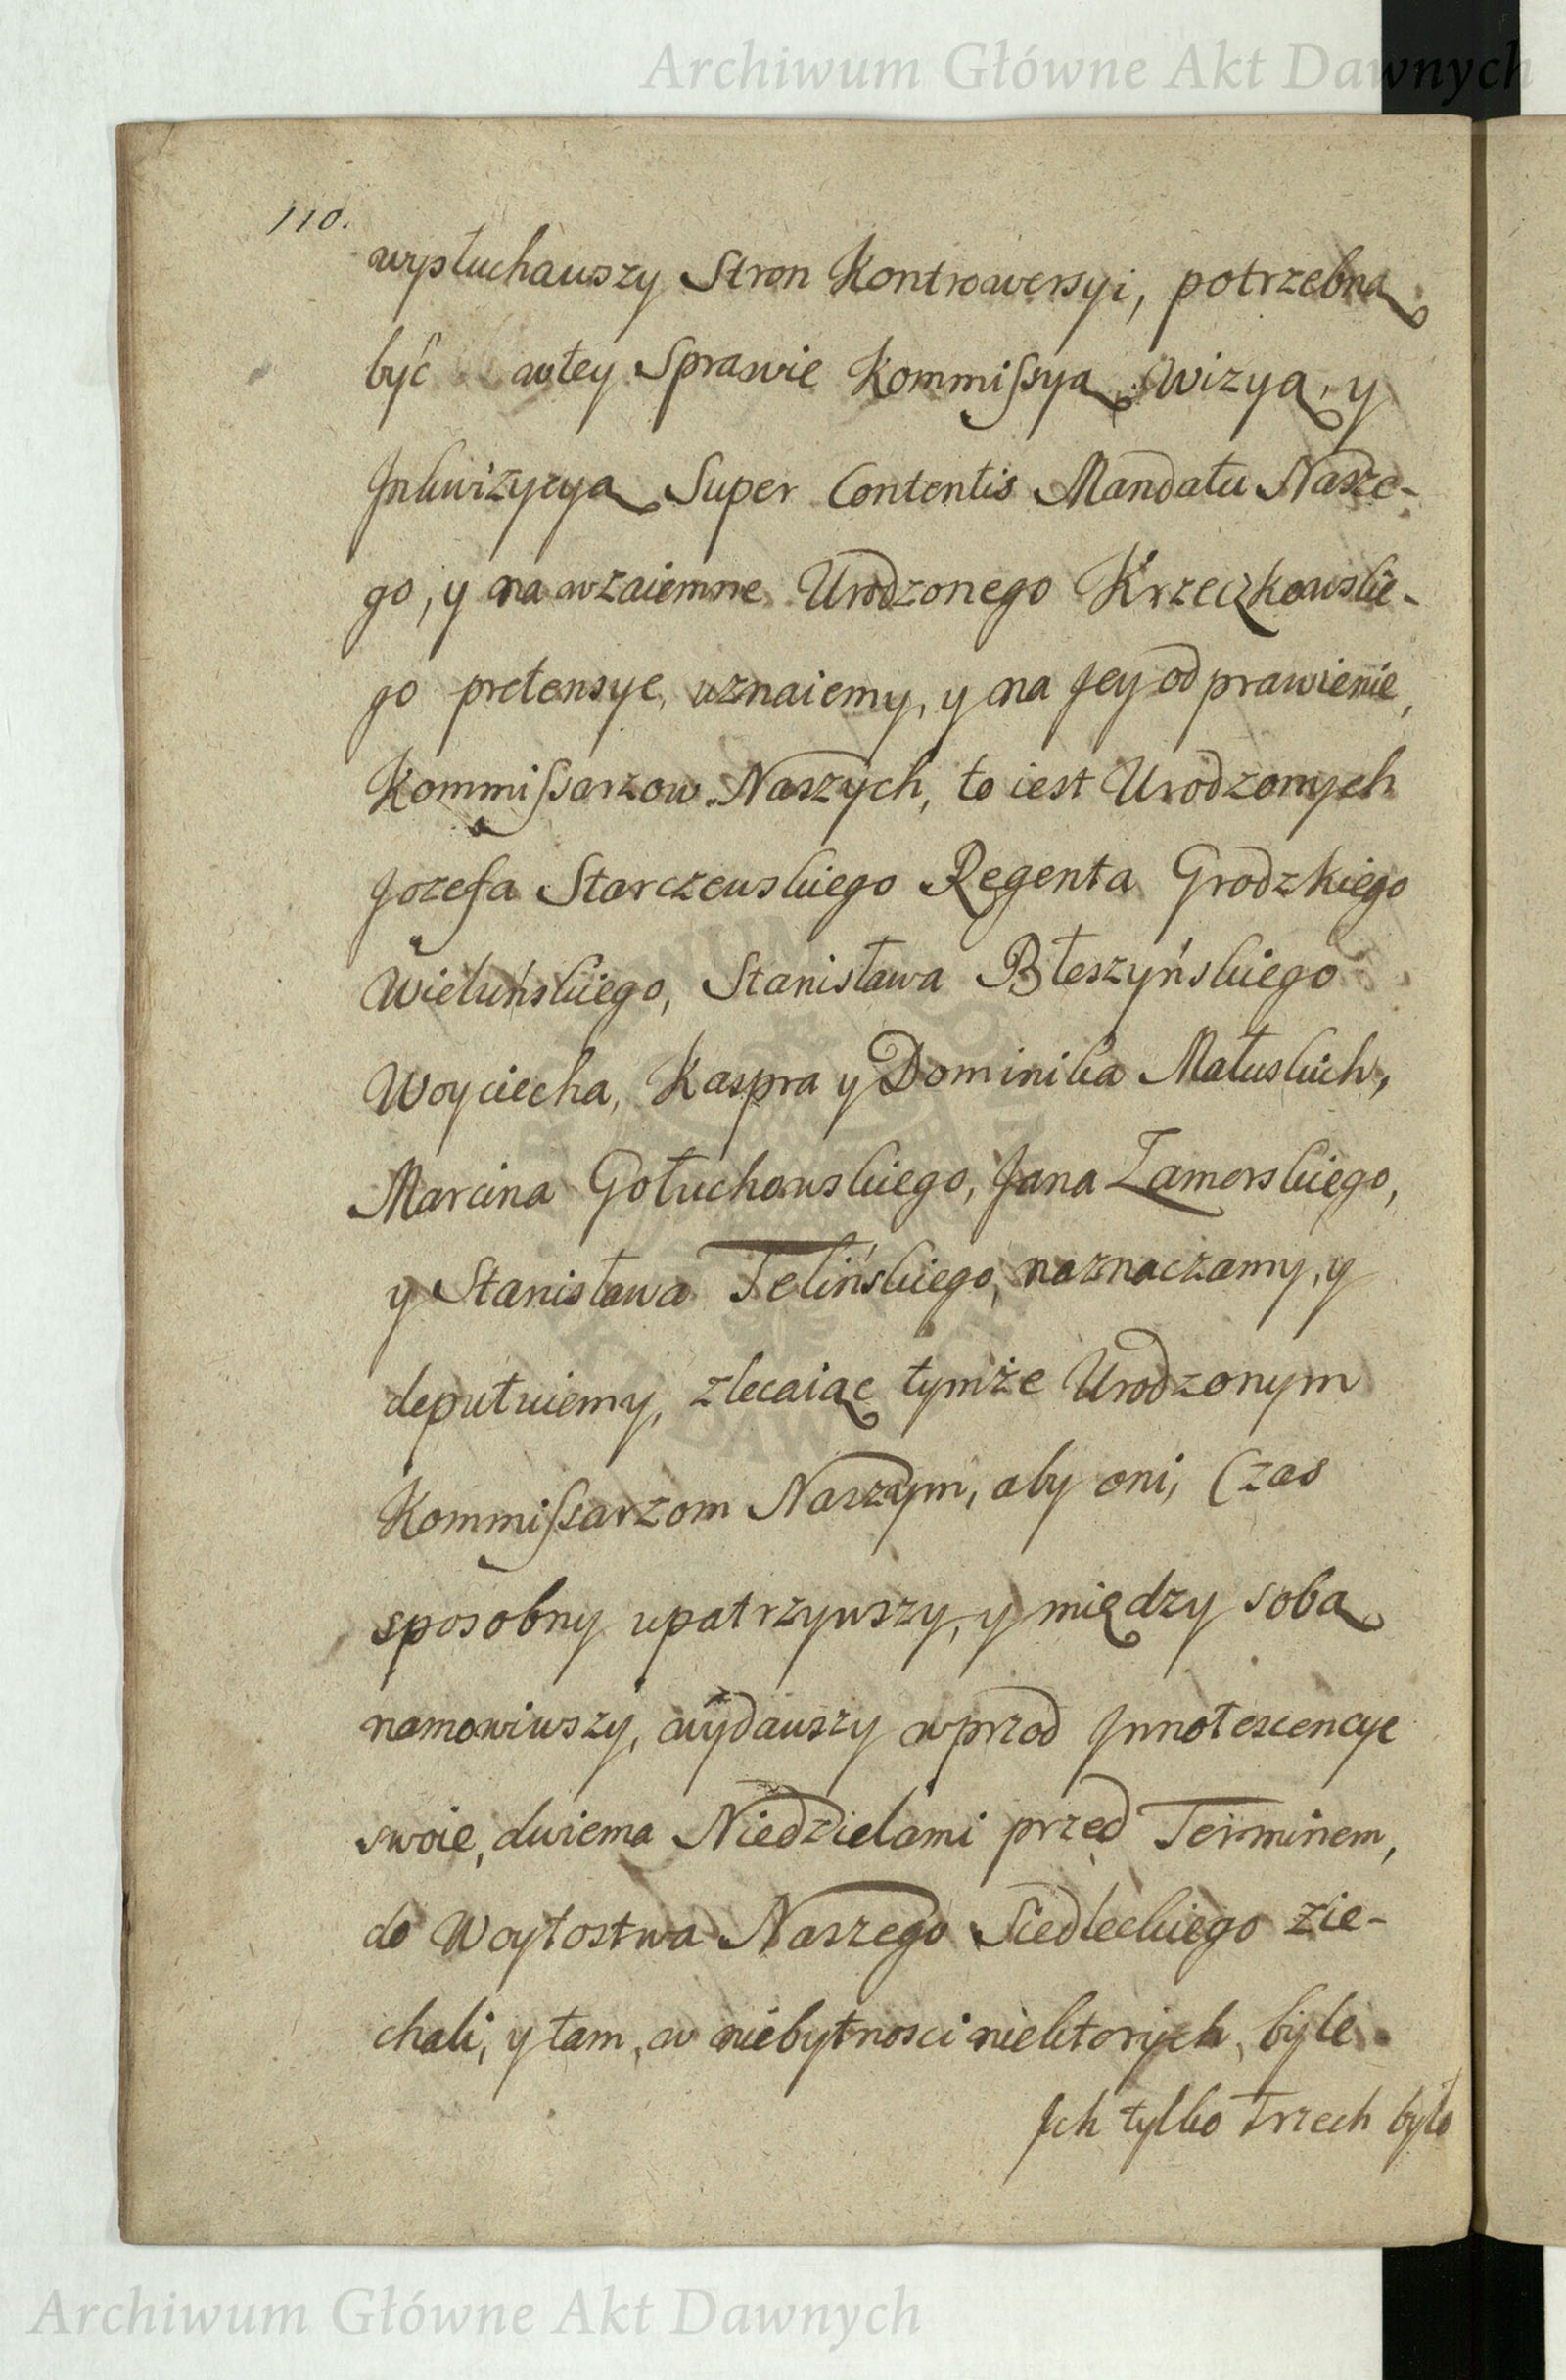 Archiwum Główne Akt Dawnych
110.
wysłuchawszy Stron Kontrowersyi, potrzebną
być wtey Sprawie Kommissyą, Wizyą, y
Jnkwizycyą Super Contentis Mandatu Nasze-
go, y na wzaiemne Urodzonego Krzeczkowskie-
go pretensye, uznaiemy, y na Jey odprawienie,
Kommissarzow Naszych, to iest Urodzonych
Jozefa Starczewskiego Regenta Grodzkiego
Wieluńskiego, Stanisława Błeszyńskiego
Woyciecha, Kaspra y Dominika Małuskich,
Marcina Gołuchowskiego, Jana Zamorskiego,
y Stanisława Telińskiego, naznaczamy, y
deputuiemy, zlecaiąc tymże Urodzonym
Kommissarzom Naszym, aby oni, Czas
sposobny upatrzywszy, y między sobą
namowiwszy, wydawszy wprzod Jnnotescencye
swoie, dwiema Niedzielami przed Terminem,
do Woytostwa Naszego Siedleckiego zie-
chali, y tam, w niebytnosci niektorych, byle
Jch tylko trzech było
Archiwum Główne Akt Dawnych